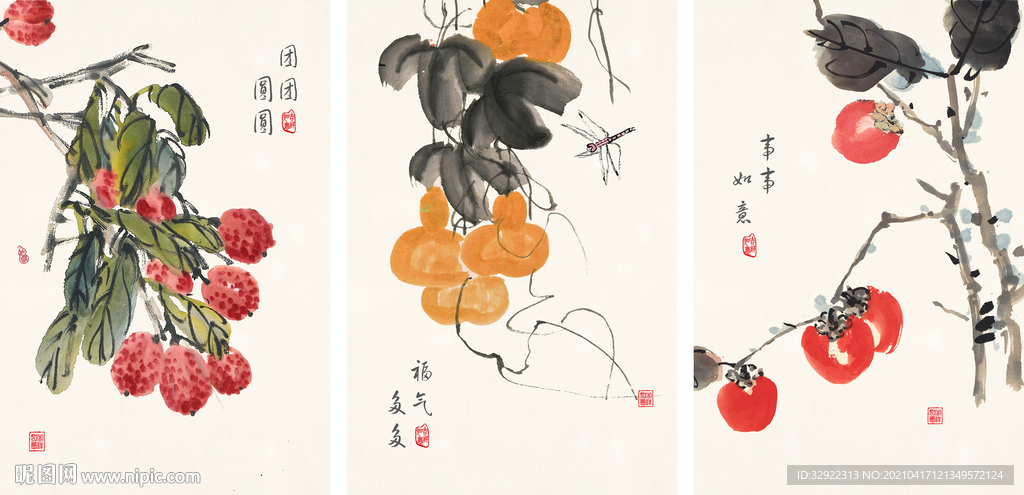 团团
圆圆
福气
多多
事事
如意
昵图网 www.nipic.com
ID:32922313 NO:20210417121349572124